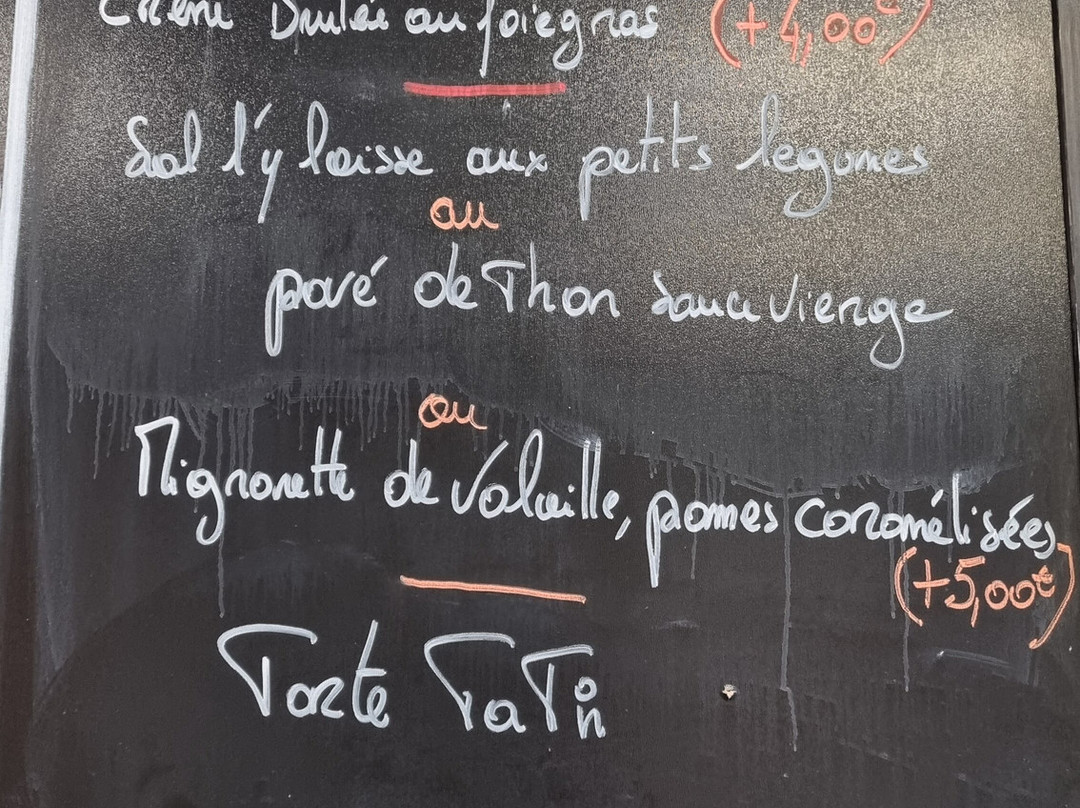 Crème Brulée au foie gras (+4,00€)
Sol l'y laisse aux petits légumes
ou
pavé de Thon sauce Vierge
ou
Mignonette de Volaille, pommes caramélisées
(+5,00€)
Tarte TaTin